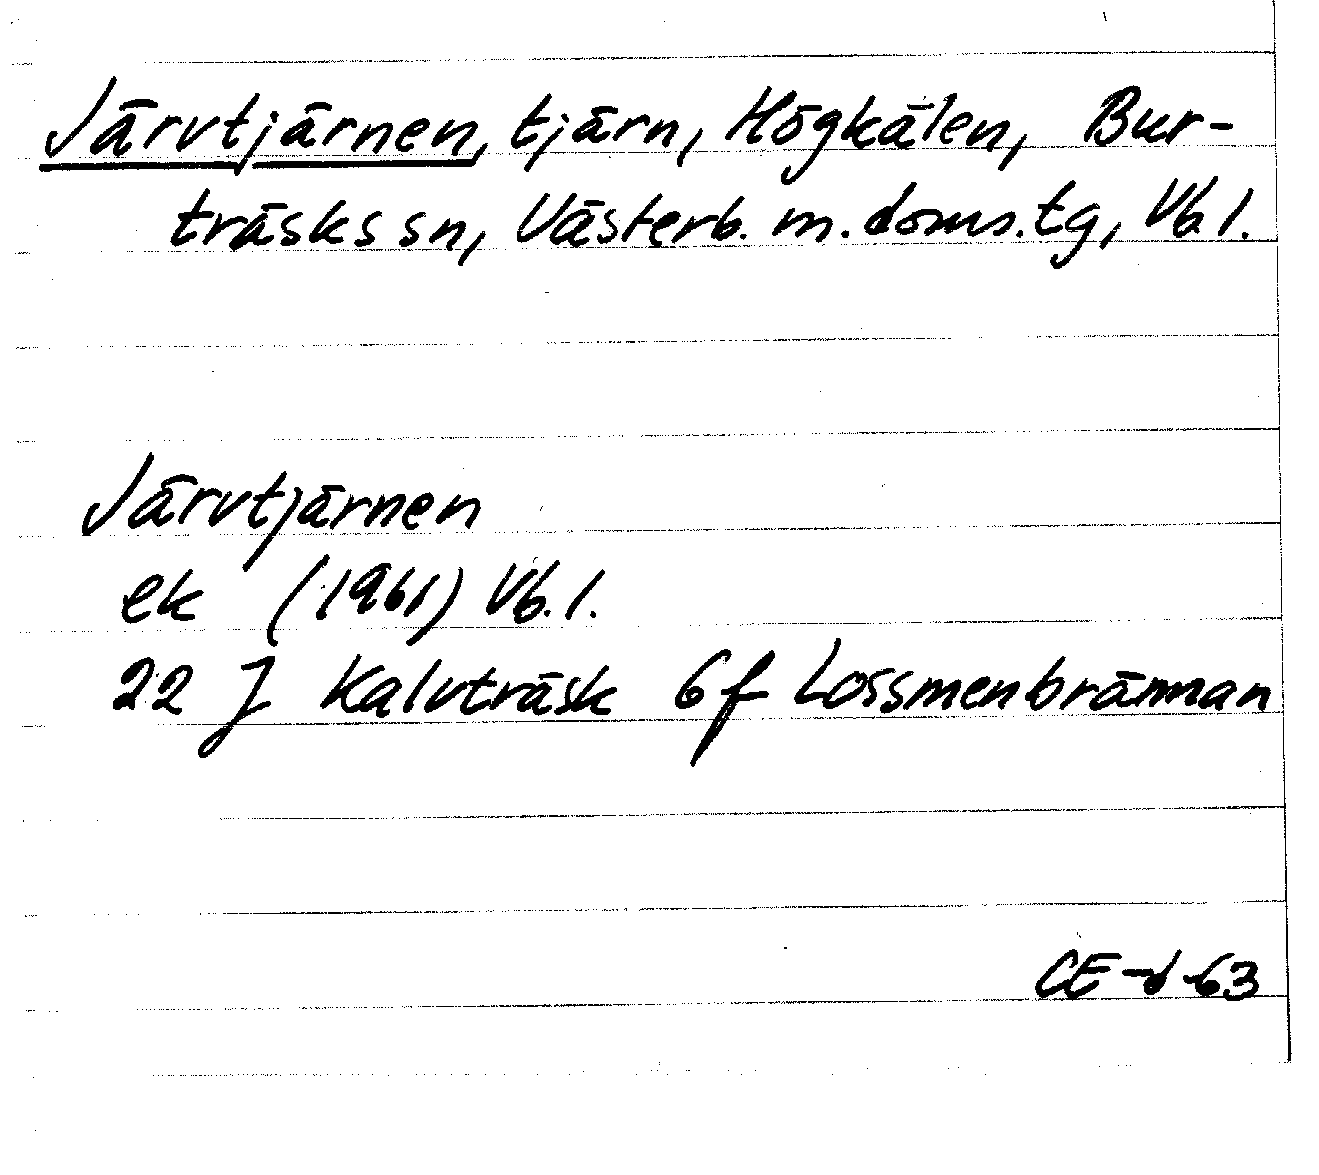 Järvtjärnen, tjärn, Högkälen, Bur-
träsks sn, Västerb. m. doms. tg, Vb. l.
Järvtjärnen
ek (1961) Vb. l.
22 J Kalvträsk 6f Lossmenbrännan
CE-d-63